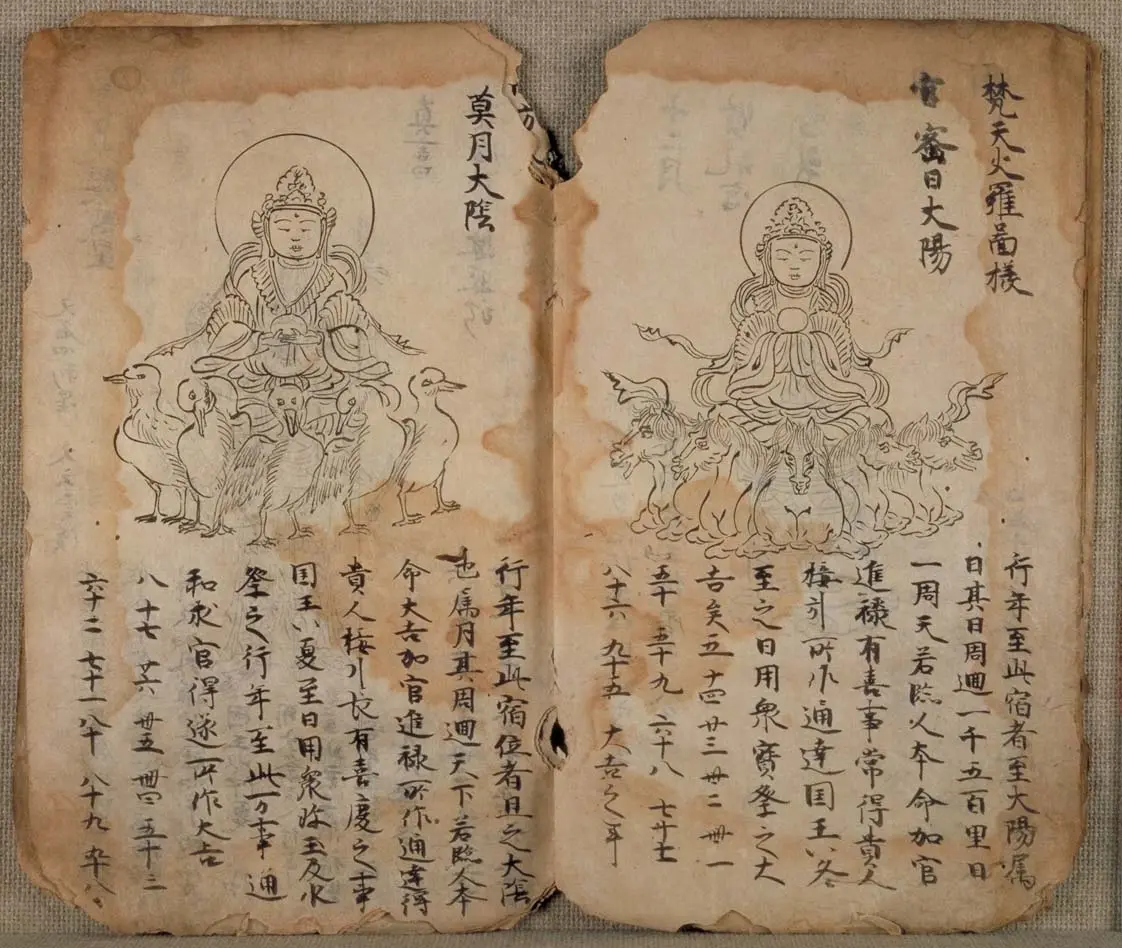 梵天火羅圖樣
密日大陽
行年至此宿者至大陽属
日其日周迴一千五百里日
一周天若臨人本命加官
進禄有喜事常得貴人
接引所作通達国王以冬
至之日用衆寳祭之大
吉矣五 十四 廿三 卅二 卌一
五十 五十九 六十八 七十七
八十六 九十五 大吉之年
方
莫月大陰
行年至此宿位者且之大陰
也属月其周迴天下若臨人本
命大吉加官進禄所作通達得
貴人接引长有喜慶之事
国王以夏至日用衆珎玉及水
祭之行年至此万事通
和求官得遂所作大吉
八 十七 廿六 卅五 卌四 五十三
六十二 七十一 八十 八十九 九十八